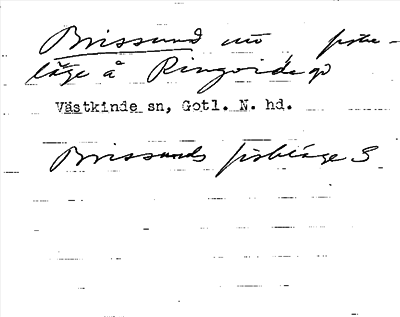 Brissund nu fiske-
läge å Ringvide gd
Västkinde sn, Gotl. N. hd.
Brissunds fiskläge S